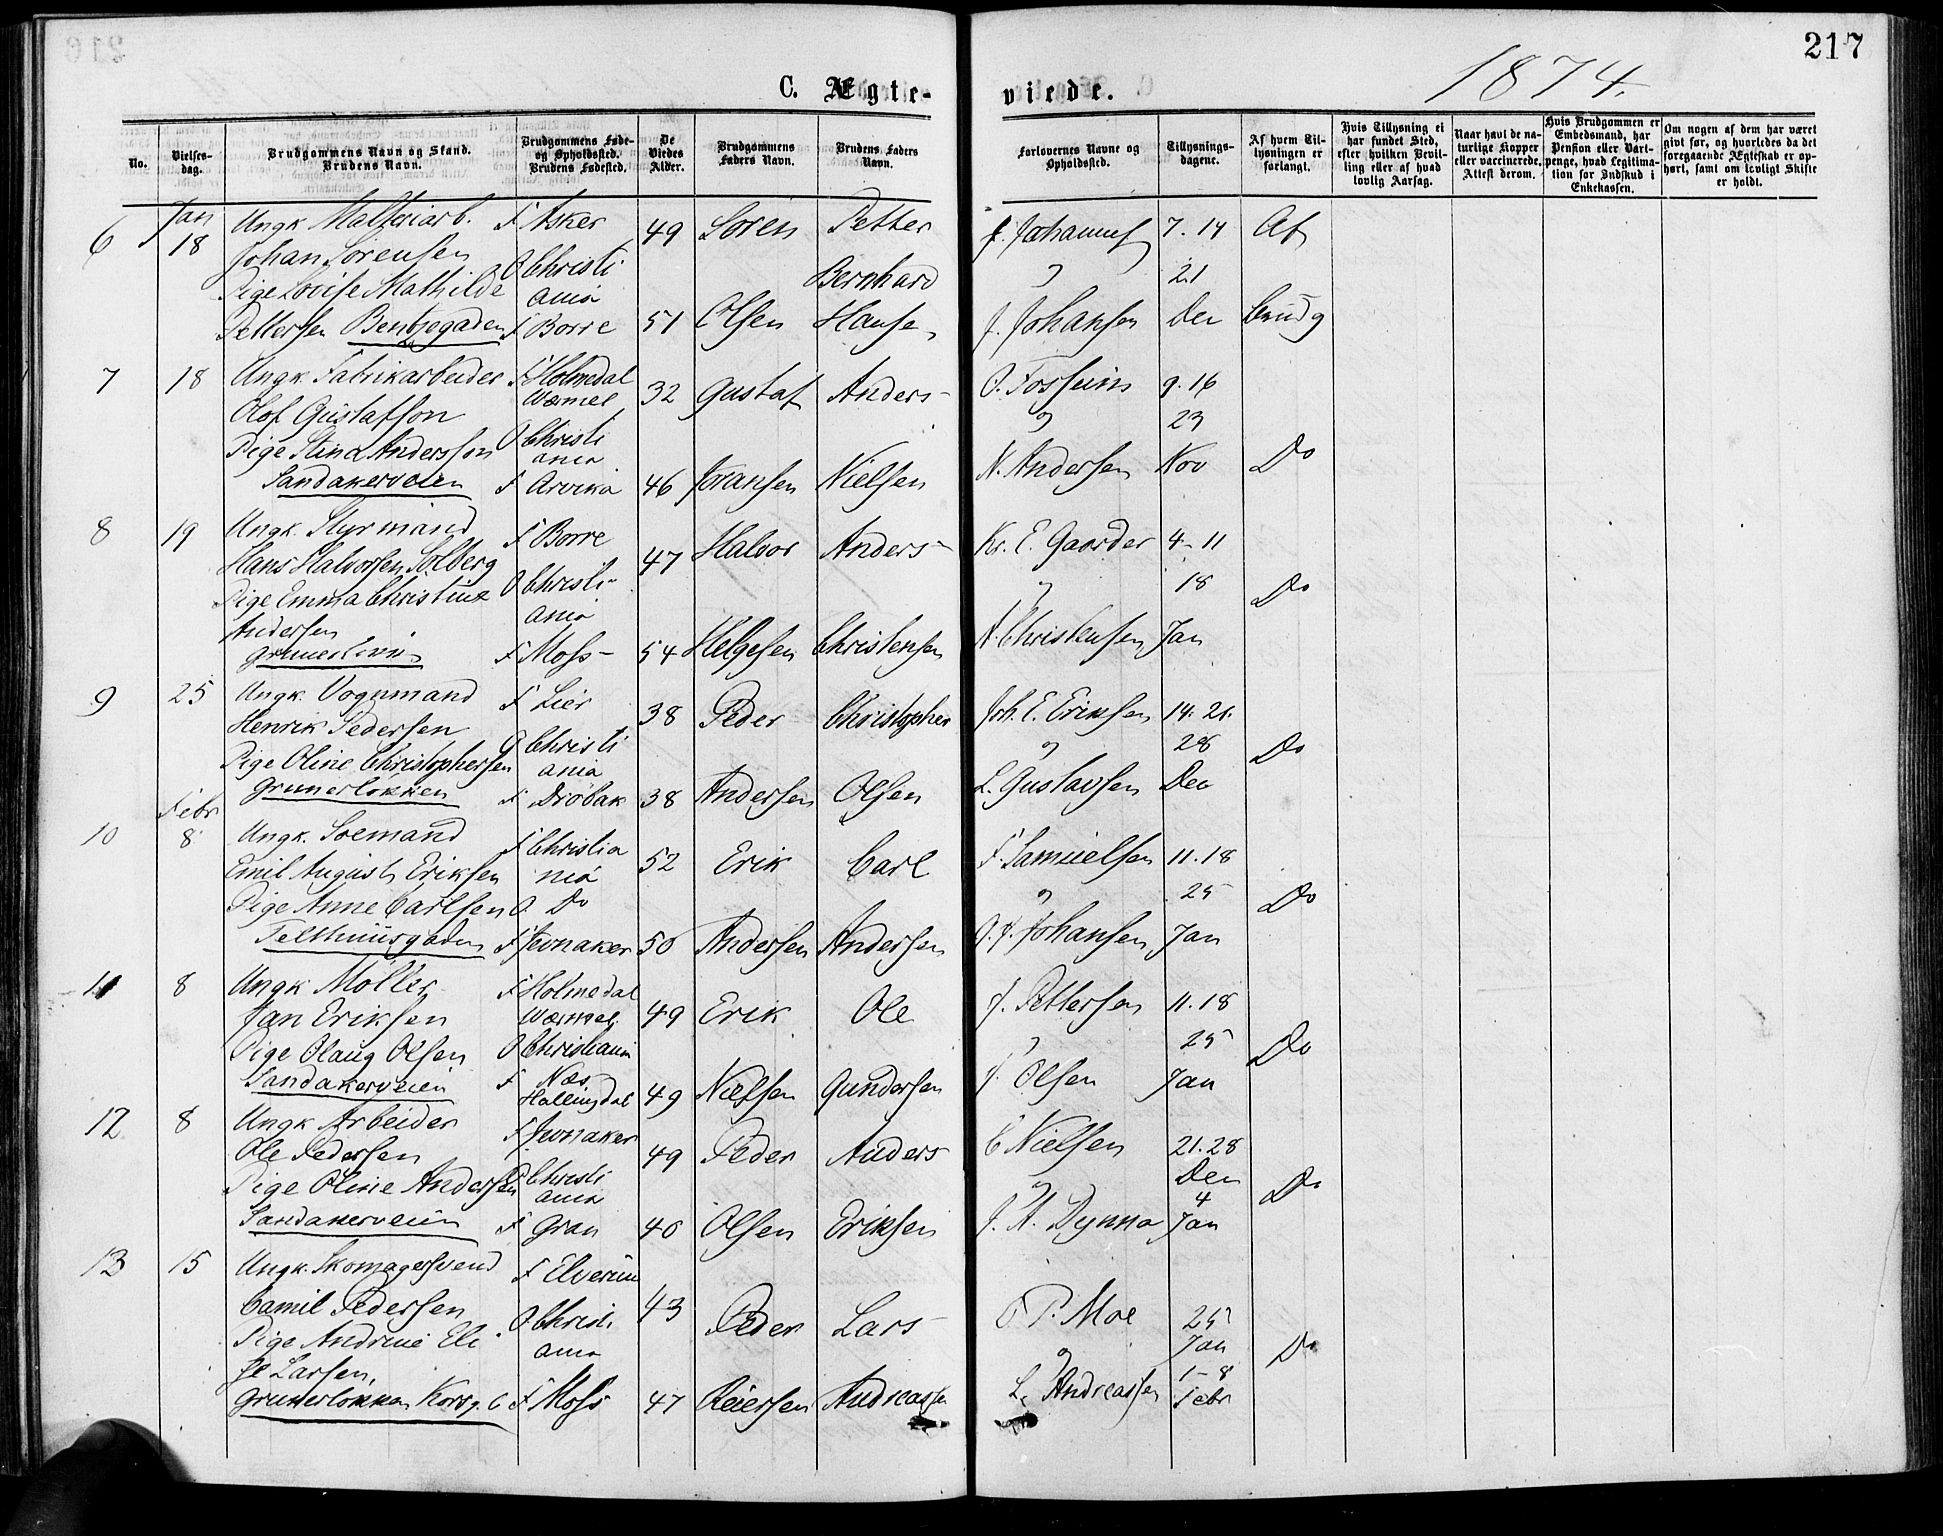 217
1874.
C. Ægte-
viede.
No.
Vielses-
dag.
Brudgommens Navn og Stand.
Brudens Navn.
Brudgommens Føde-
og Opholdssted.
Brudens Fødested.
De
Viedes
Alder.
Brudgommens
Faders Navn.
Brudens Faders
Navn.
Forlovernes Navne og
Opholdssted.
Tillysnings-
dagene.
Af hvem Til-
lysningen er
forlangt.
Hvis Tillysning ei
har fundet Sted,
efter hvilken Bevil-
ling eller af hvad
lovlig Aarsag.
Naar havt de na-
turlige Kopper
eller vaccinerede.
Attest derom.
Hvis Brudgommen er
Embedsmand, har
Pension eller Vart-
penge, hvad Legitima-
tion for Indskud i
Enkekassen.
Om nogen af dem har været
gift før, og hvorledes da det
foregaaende Ægteskab er op-
hørt, samt om lovligt Skifte
er holdt.
6 Jan 18
Ungk Malteriarb.
Johan Sørensen
Pige Lovise Mathilde
Pettersen Bentsegaden
F Asker
O Christi
ania
F Borre
49
51
Søren
Olsen
Petter
Bernhard
Hansen
J. Johannes
J. Johansen
7. 14
21
Dec
Af
Brudg
7 18
Ungk. Fabrikarbeider
Olof Gustafson
Pige Stina Andersson
Sandakerveien
F Holmedal
Wærmel
O Christi
ania
F Arvika
32
46
Gustaf
Joransen
Anders
Nielsen
O. Fossum
N. Andersen
9. 16
23
Nov
Do
8 19
Ungk. Styrmand
Hans Halvorsen Solberg
Pige Emma Christine
Andersen
F Borre
O Christi-
ania
F Moss
47
54
Halvor
Helgesen
Anders
Christensen
Kr. E. Gaarder
A. Christensen
4 - 11
18
Jan
Do
9 25
Ungk. Vognmand
Henrik Pedersen
Pige Oline Christophersen
Grunerløkken
F Lier
O Christi
ania
F Drøbak
38
38
Peder
Andersen
Christopher
Olsen
Joh. E. Eriksen
L. Gustavsen
14. 21.
28
Dec
Do
10 Febr 8
Ungk. Sømand
Emil August Eriksen
Pige Anne Carlsen
Telthuusgaden
F Christia
nia
O Do
F Jevnaker
52
50
Erik
Andersen
Carl
Andersen
F. Samuelsen
Johansen
11. 18
25
Jan
Do
11 8
Ungk Møller
Jan Eriksen
Pige Olaug Olsen
Sandakerveien
F Holmedal
Wærmel.
O Christiania
F Næs
Hallingdal
49
49
Erik
Nielsen
Ole
Gundersen
J. Pettersen
J. Olsen
11. 18
25
Jan
Do
12 8
Ungk Arbeider
Ole Pedersen
Pige Oline Andersen
Sandakerveien
F Jevnaker
O Christi
ania
F Gran
49
40
Peder
Olsen
Anders
Eriksen
C Nielsen
J. A. Dynna
21. 28
Dec
4
Jan
Do
13 15
Ungk. Skomagersvend
Camil Pedersen
Pige Andrine Eli
se Larsen,
Grunerløkken Korsg. 6
F Elverum
O Christi
ania
F Moss
43
47
Peder
Reiersen
Lars
Andreassen
O P. Moe
L. Andreassen
25
Jan
1 - 8
Febr
Do